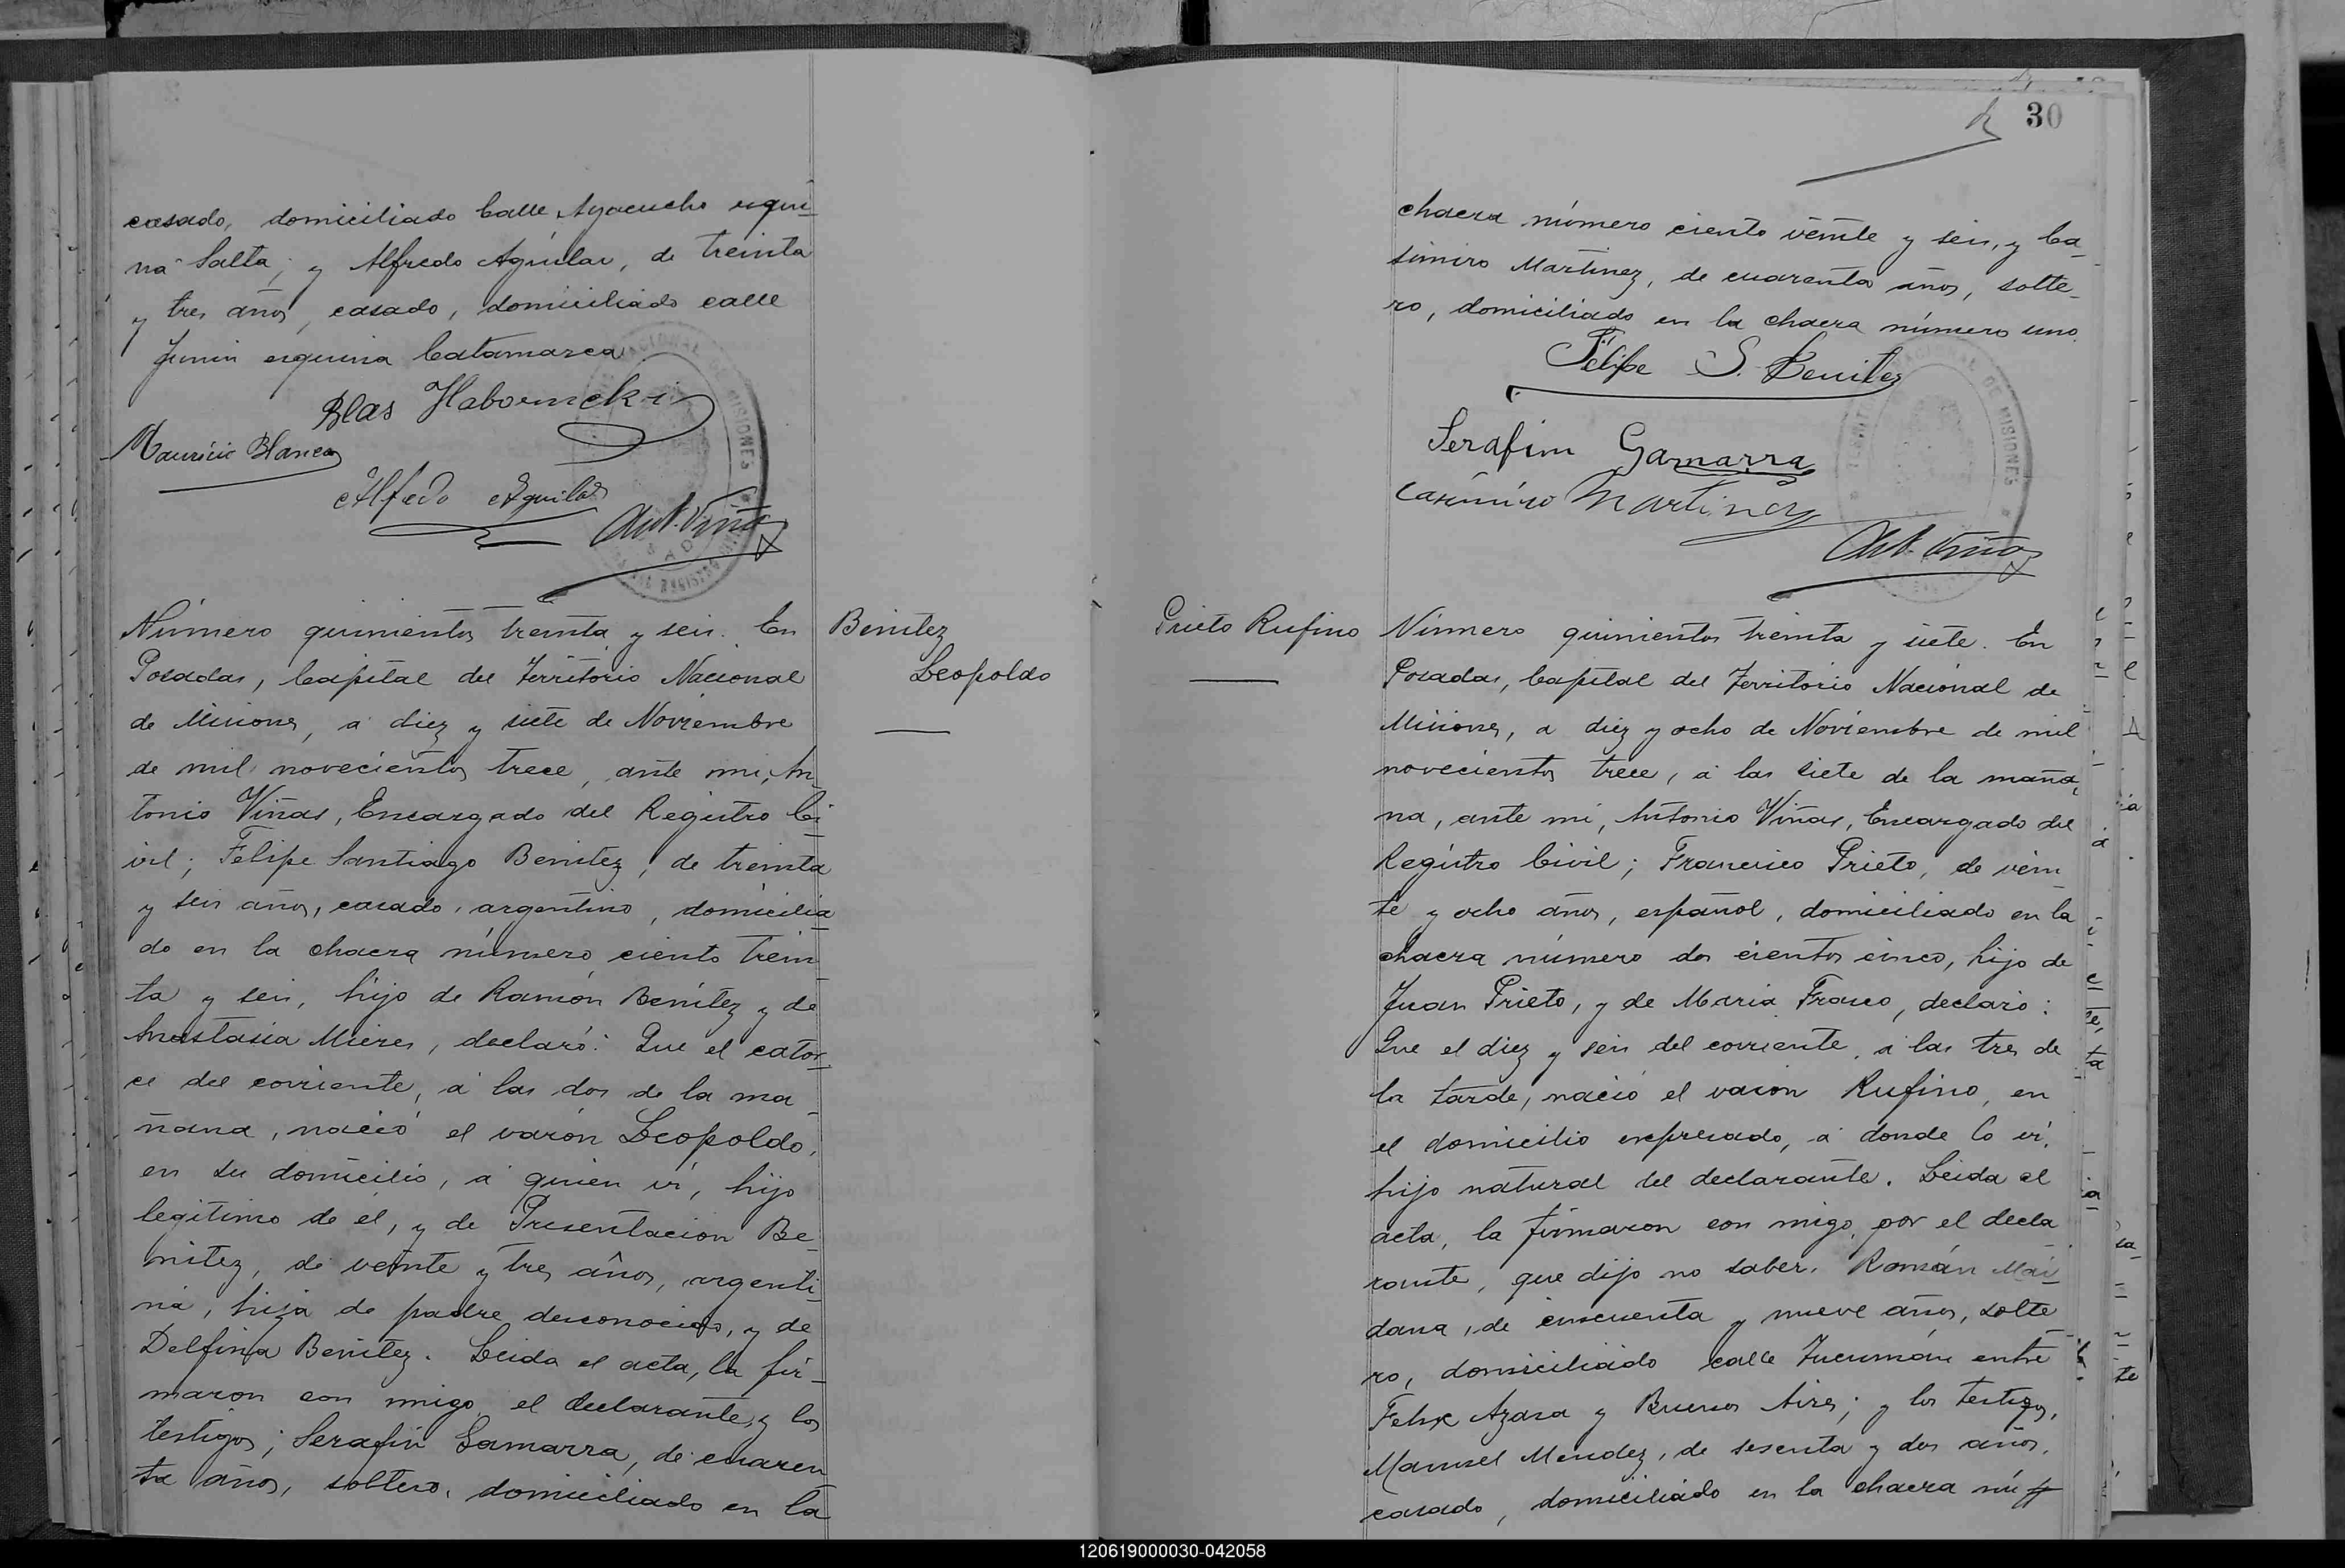 casado, domiciliado Calle Ayacucho esqui-
na Salta; y Alfredo Aguilar, de treinta
y tres años, casado, domiciliado calle
Junin esquina Catamarca
Blas
Mauricio Blanco
Alfredo Aguilar
Ant. Viñas
Número quinientos treinta y seis. En
Posadas, Capital del Territorio Nacional
de Misiones, á diez y siete de Noviembre
de mil novecientos trece, ante mi, An-
tonio Viñas, Encargado del Registro Ci-
vil; Felipe Santiago Benitez, de treinta
y seis años, casado, argentino, domicilia-
do en la chacra número ciento trein-
ta y seis, hijo de Ramón Benítez y de
Anastasia Mieres, declaró: Que el cator-
ce del corriente, á las dos de la ma-
ñana, nació el varón Leopoldo,
en su domicilio, á quien ví, hijo
legítimo de él, y de Presentacion Be-
nitez, de veinte y tres años, argenti-
na, hija de padre desconocido, y de
Delfina Benitez. Leida el acta, la fir-
maron con migo el declarante y los
testigos; Serafín Gamarra, de cuaren-
ta años, soltero, domiciliado en la
Benitez
Leopoldo
30
chacra número ciento veinte y seis, y Ca-
simiro Martinez, de cuarenta años, solte-
ro, domiciliado en la chacra número uno.
Felipe S. Benitez
Serafim Gamarra
Casimiro Martinez
Ant. Viñas
Prieto Rufino
Número quinientos treinta y siete. En
Posadas, Capital del Territorio Nacional de
Misiones, a diez y ocho de Noviembre de mil
novecientos trece, á las siete de la maña-
na, ante mi, Antonio Viñas, Encargado del
Registro Civil; Francisco Prieto, de vein-
te y ocho años, español, domiciliado en la
chacra número dos cientos cinco, hijo de
Juan Prieto, y de Maria Franco, declaró:
Que el diez y seis del corriente, á las tres de
la tarde, nació el varon Rufino, en
el domicilio expresado, á donde lo ví,
hijo natural del declarante. Leida el
acta, la firmaron con migo, por el decla-
rante, que dijo no saber, Román Mai-
dana, de cincuenta y nueve años, solte-
ro, domiciliado calle Tucumán entre
Felix Azara y Buenos Aires; y los testigos,
Manuel Mendez, de sesenta y dos años,
casado, domiciliado en la chacra nú
120619000030-042058